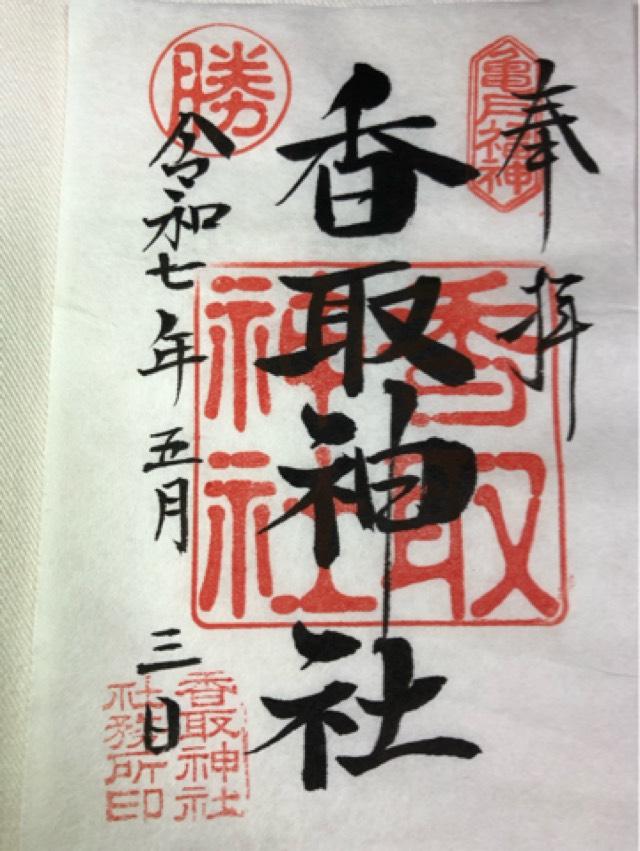 奉拝
亀戸社神
香取神社
香取神社
勝
令和七年五月三日
香取神社
社務所印